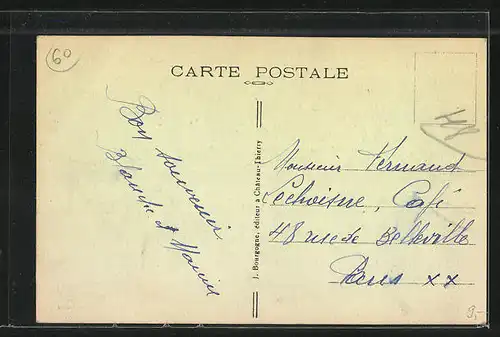 60
CARTE POSTALE
Bon souvenir
Blanche &
J. Bourgogne, éditeur à Château-Thierry
48
Monsieur Fernand
Café
48 rue de Belleville
Paris xx
9.-